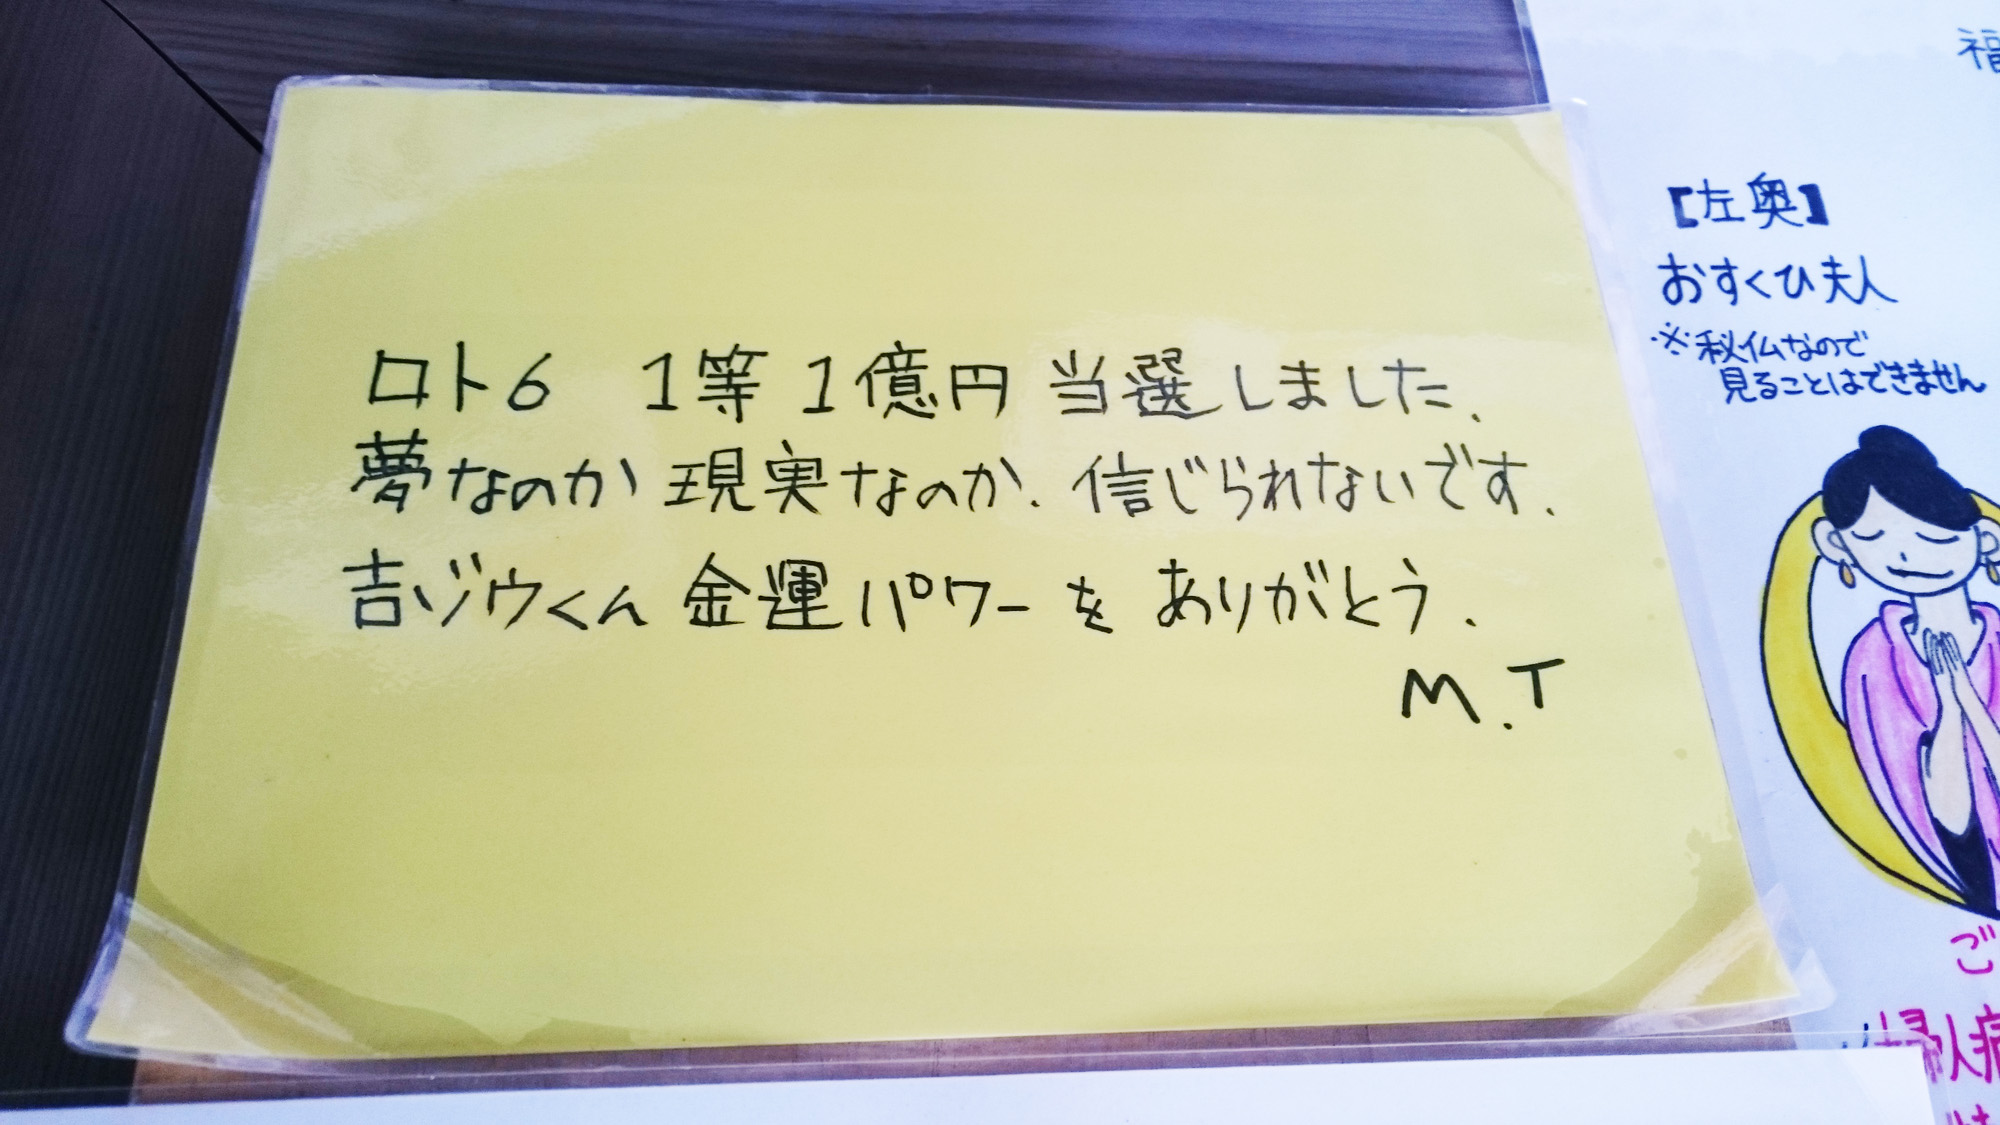 ロト6 1等 1億円 当選しました.
夢なのか 現実なのか. 信じられないです.
吉ゾウくん 金運パワーを ありがとう.
M.T
福
【左奥】
おすくひ夫人
※秘仏なので
見ることはできません
ご
婦人病